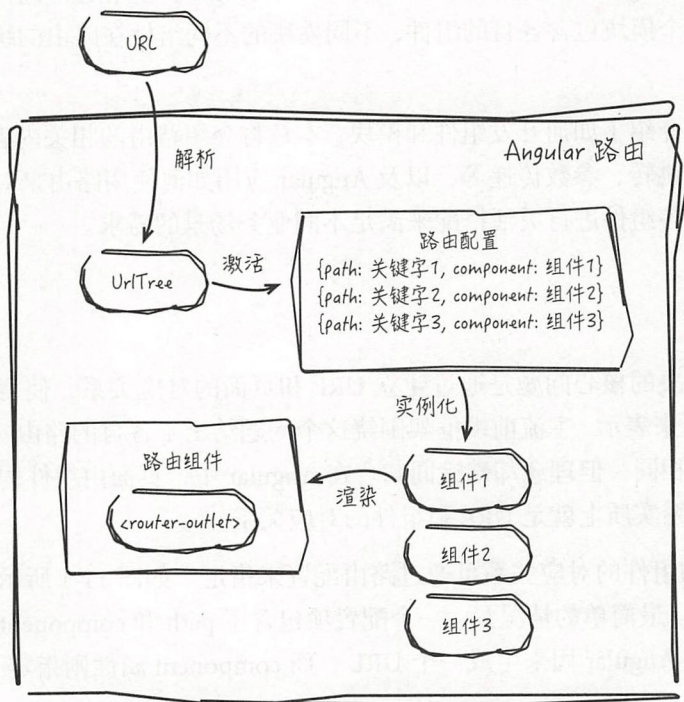 URL
解析
Angular 路由
UrlTree
激活
路由配置
{path: 关键字1, component: 组件1}
{path: 关键字2, component: 组件2}
{path: 关键字3, component: 组件3}
实例化
路由组件
<router-outlet>
渲染
组件1
组件2
组件3